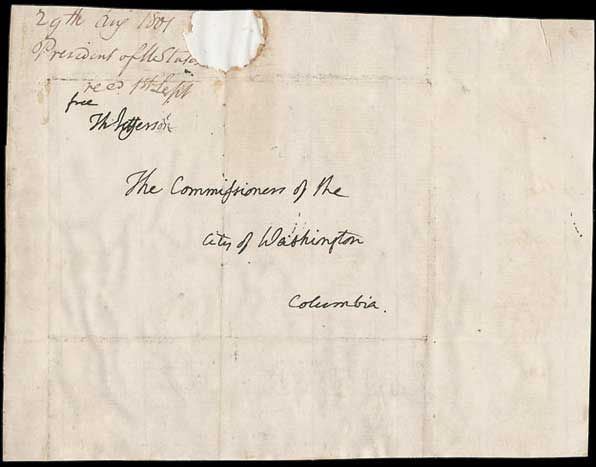 29th Aug 1801
President of U States
recd 1st Sept
free
Th: Jefferson
The Commissioners of the
City of Washington
Columbia.